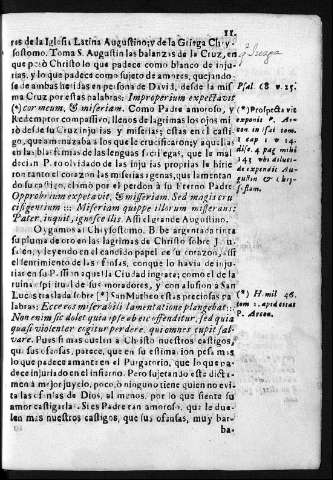 11.
res de la Iglesia Latina Augustino; y de la Griega Chry-
sostomo. Toma S. Augustin las balanzas de la Cruz, en
que pesò Christo lo que padece como blanco de injurias
y lo que padece como sujeto de amores, quejando-
se de ambas heridas en persona de David, desde la mis-
ma Cruz por estas palabras: Improperium expectavit
(*) cor meum, & miseriam. Como Padre amoroso, y
Redemptor compassivo, llenos de lagrimas los ojos mi-
rò desde su Cruz injurias y miserias; estas en el casti-
go, que amenazaba à los que le crucificaron; y aquellas
en las blasfemias de las lenguas sacrilegas, que le mal-
decian. P. ro olvidado de las injurias proprias le hirie-
ron tanto el corazon las miserias agenas, que lamentan-
do su castigo, clamò por el perdòn à su Eterno Padre
Opprobrium expetavit, & misseriam. Sed magis cru-
cifigentium ::: Miseriam quippe illorum misserans:
Pater, inquit, ignosce illis. Assi el grande Augustino.
Oygamos al Chrysostomo. B. be argentada tinta
su pluma de oro en las lagrimas de Christo sobre J. ru-
salèn, y leyendo en el candido papel de su corazon, assi
el sentimiento de las ofensas, conque lo havia de inju-
riar en su Passion aquella Ciudad ingrata; como el de la
ruina espiritual de sus moradores, y con alusion à San
Lucas traslada sobre (*) San Matheo estas preciosas pa-
labras: Ecce res miserabili lamentatione plangebat::
Non enim sic dolet quia ipse ab eis offenditur, sed quia
quasi violenter cogitur perdere, qui omnes cupit sal-
vare. Pues si mas suelen à Christo nuestros castigos,
qui sus ofensas, parece, que en su estimacion pesa mas
lo que padece amante en el Purgatorio, que lo que pa-
dece injuriado en el infierno. Pero sujetando este dicta-
men à mejor juycio, poco, ò ninguno tiene quien no evi-
ta las ofensas de Dios, al menos, por lo que siente su
amor castigarla. Si es Padre tan amoroso, que le due-
len mas nuestros castigos, que sus ofensas, muy bar-
ba-
Psal. 68 v. 25.
(*) Prospecta vit
exponit P. Ar-
cen in Isai tom.
1 cap 1 v 14.
disc. 4 pag mihi
143 ubi diluci-
de expendit Au-
gustin & Chri-
sostom.
(*) Homil 46.
tom 2. apud estat
P. Arcen.